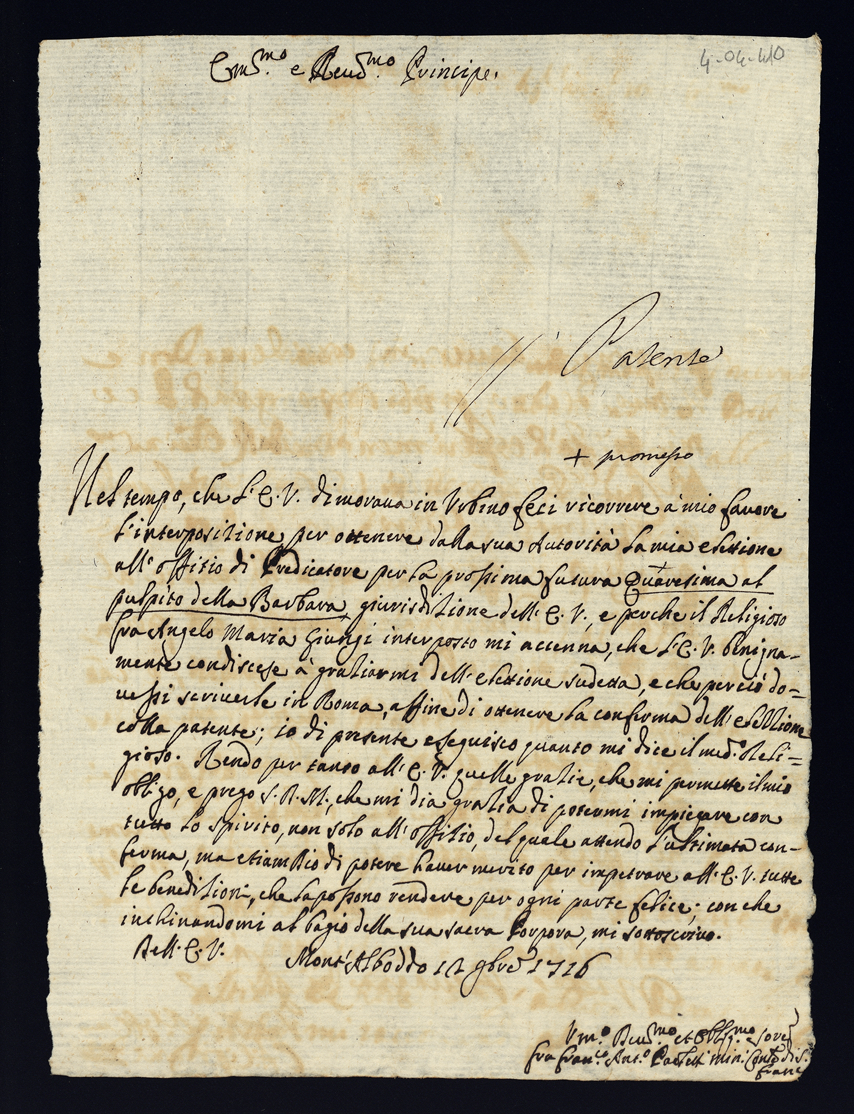 Em.mo e Reud.mo Principe.
4-04-410
Patente
+ promesso
Nel tempo, che l'E.V. dimoraua in Vrbino feci ricorrere à mio fauore
l'interposizione per ottenere dalla sua Autorità la mia elettione
all'offitio di Predicatore per la prossima futura Quaresima al
pulpito della Barbara, giurisditione dell'E.V., e perche il Religioso
fra Angelo Maria Giungi interposto mi accenna, che l'E.V. benigna-
mente condiscese à gratiarmi dell'elettione sudetta, e che perciò do=
uessi scriuerle in Roma, affine di ottenere la conferma dell'elettione
colla patente; io di presente eseguisco quanto mi dice il med.o Reli=
gioso. Rendo per tanto all'E.V. quelle gratie, che mi permette il mio
obligo, e prego S.D.M., che mi dia gratia di potermi impiegare con
tutto lo spirito, non solo all'offitio, del quale attendo l'ultimata con-
ferma, ma etiamdio di potere hauer merito per impetrare all'E.V. tutte
le beneditioni, che la possono rendere per ogni parte felice; con che
inchinandomi al bagio della sua sacra Porpora, mi sottoscriuo.
Dell'E.V.
Mont'Alboddo 12 9bre 1716
Vm.o Deu.mo et Obblig.mo Seru.
fra Fran.co Ant.o min. Conu. di S.
Franc.